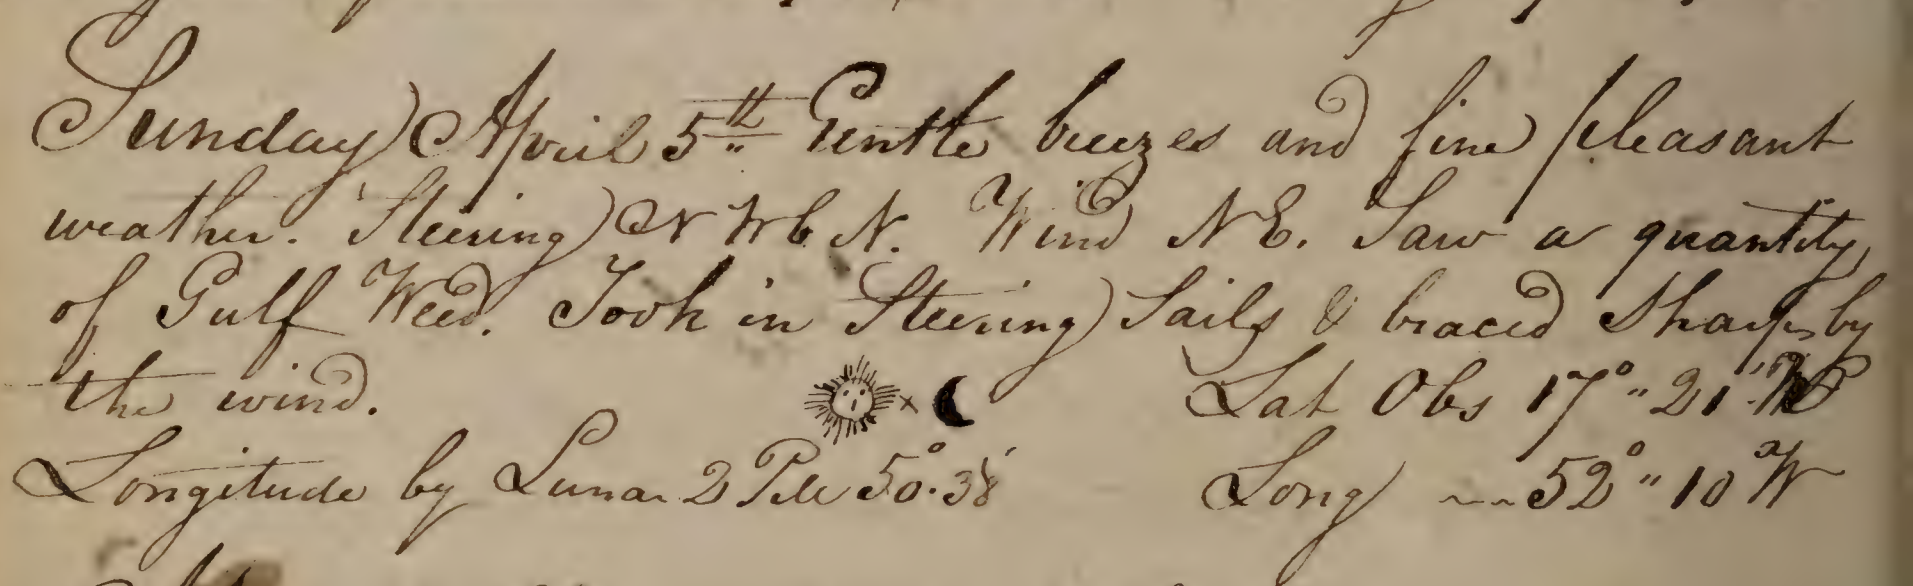 Sunday April 5th Gentle breezes and fine pleasant
weather. Steering N W b N. Wind NE. Saw a quantity
of Gulf Weed. Took in Steering Sails & braced Sharp by
the wind. Lat Obs 17°" 21"
Longitude by Lunar 2 PM 50°.38' Long 52°" 10 W